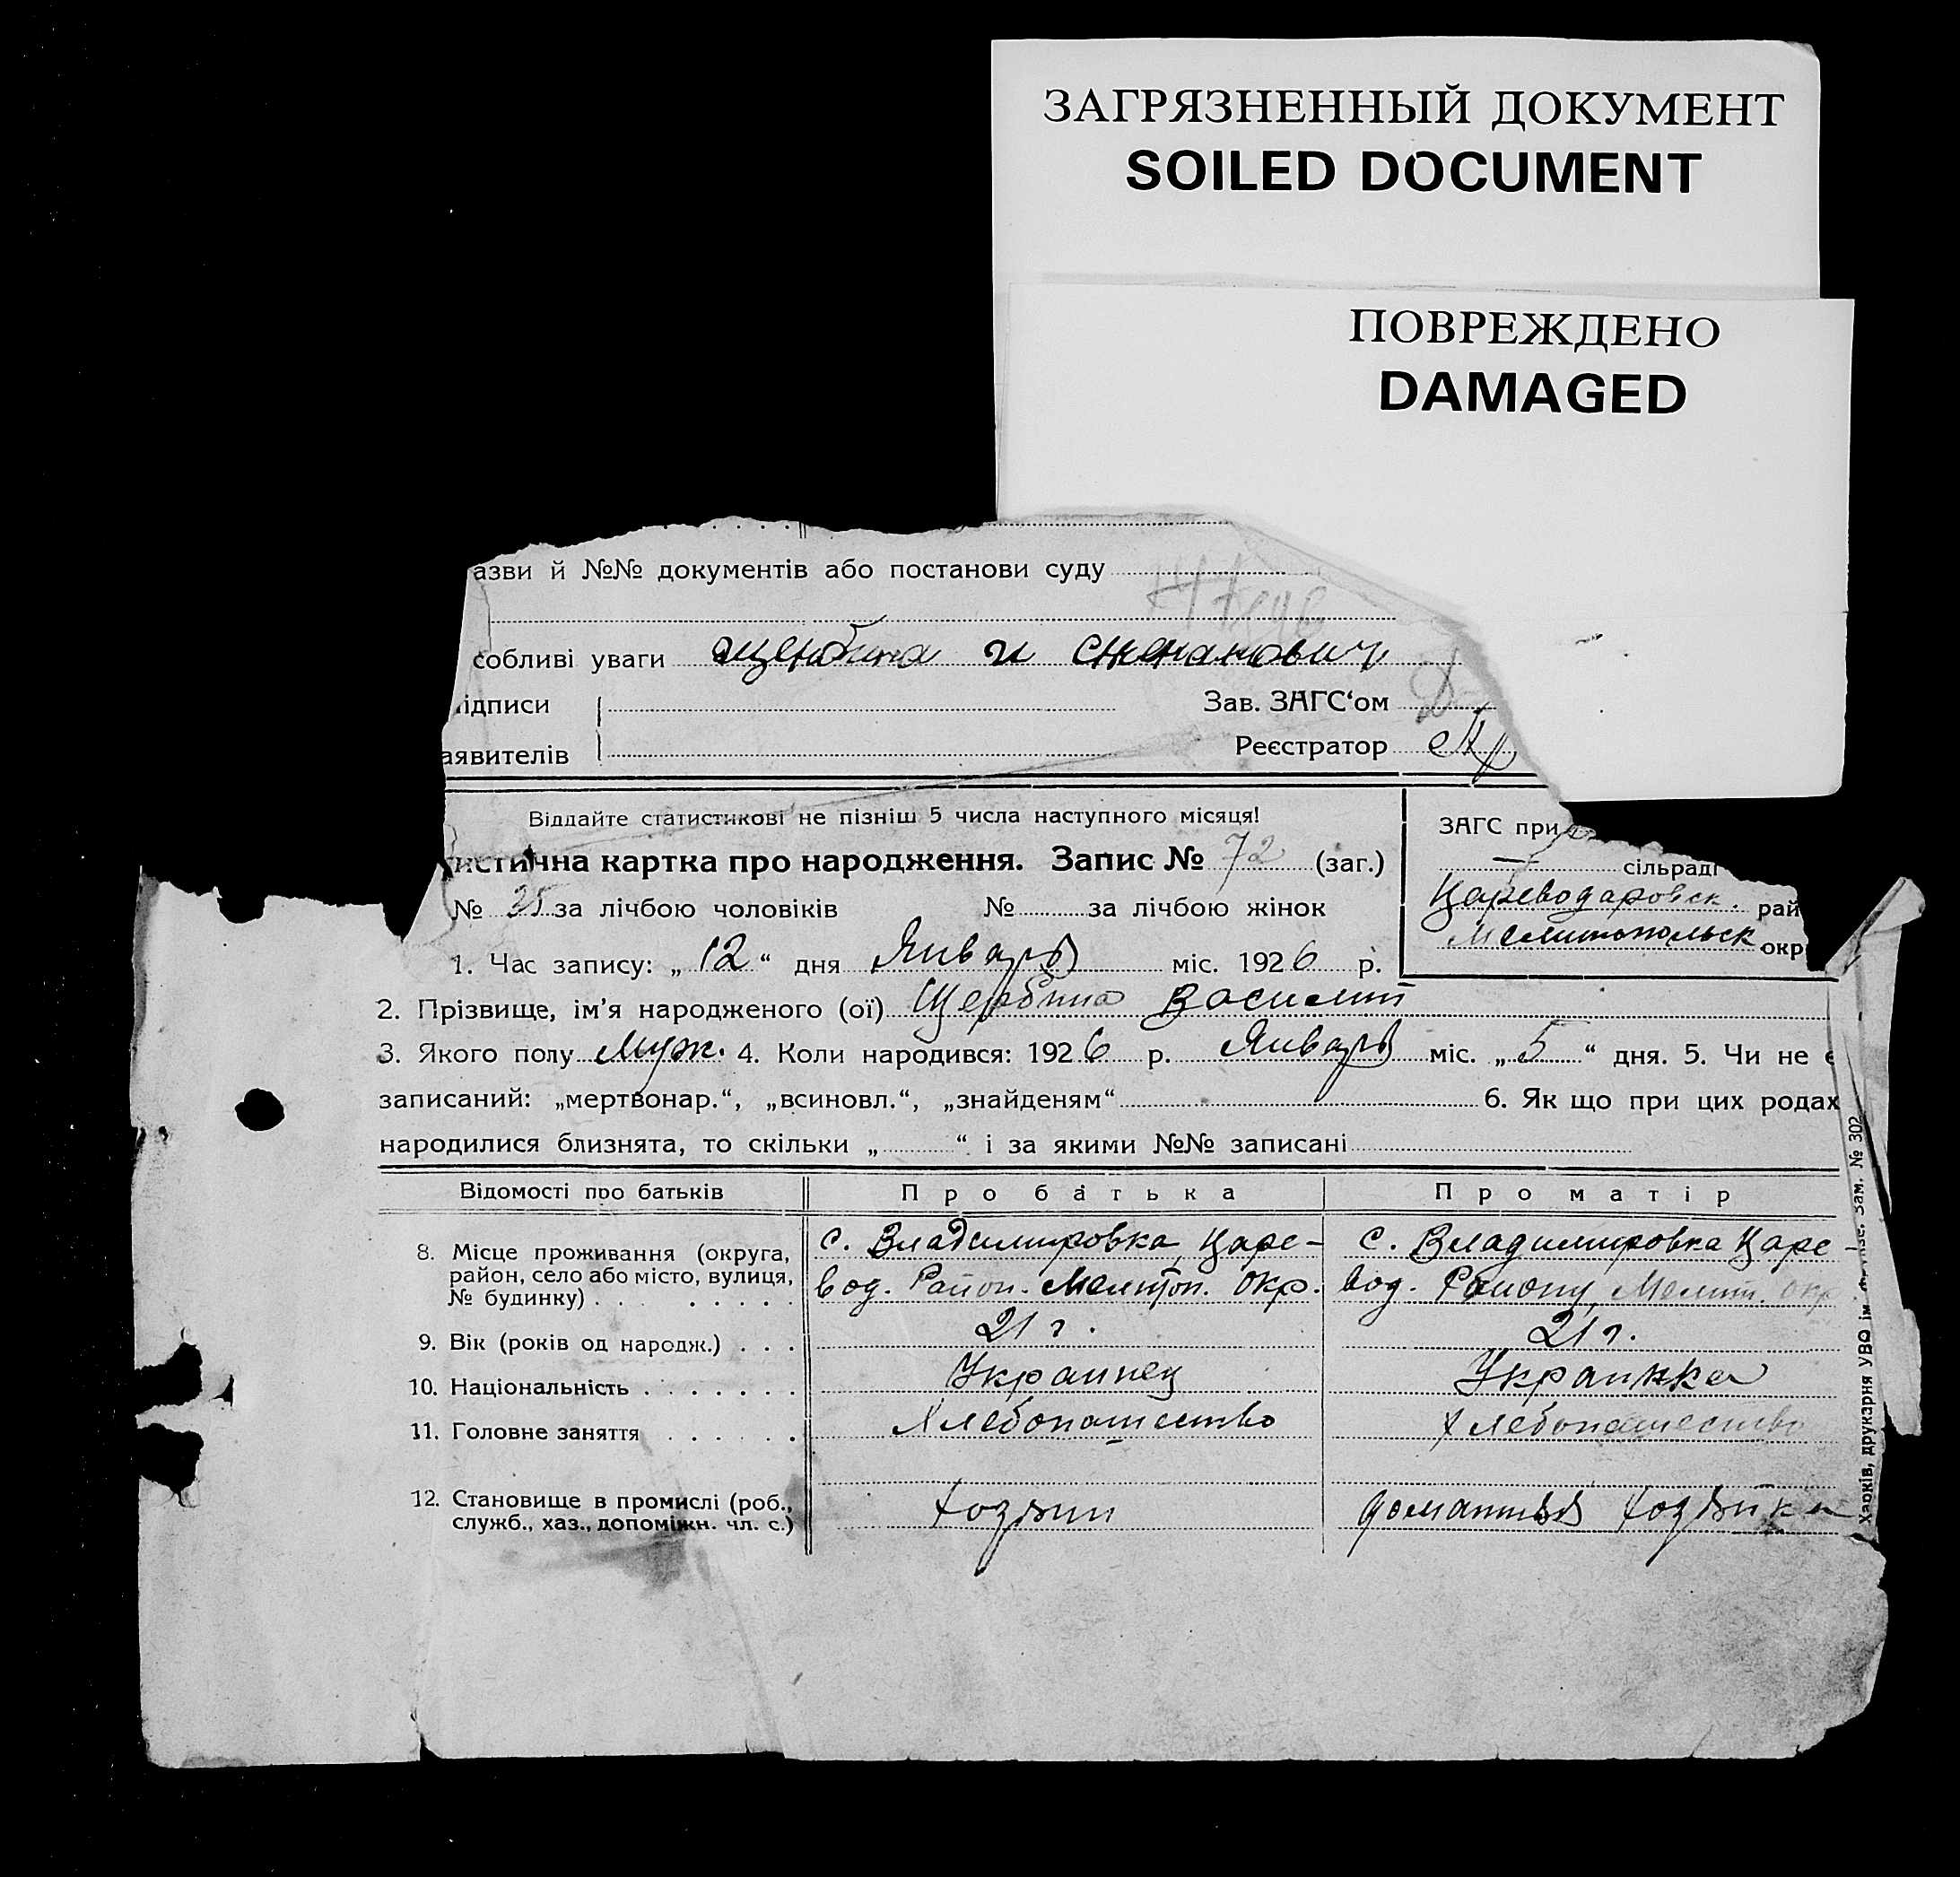 ЗАГРЯЗНЕННЫЙ ДОКУМЕНТ
SOILED DOCUMENT
ПОВРЕЖДЕНО
DAMAGED
азви й №№ документів або постанови суду
собливі уваги и
ідписи Зав. ЗАГС‘ом
аявителів Реєстратор
Віддайте статистикові не пізніш 5 числа наступного місяця!
тистична картка про народження. Запис № 72 (заг.)
ЗАГС при
сільраді
Цареводаровск. рай
Мелитопольск окр
№ 35 за лічбою чоловіків № за лічбою жінок
1. Час запису: „12“ дня Январь міс. 1926 р.
2. Прізвище, ім’я народженого (ої) Щербина Василий
3. Якого полу Муж. 4. Коли народився: 1926 р. Январь міс. „5“ дня. 5. Чи не є
записаний: „мертвонар.“, „всиновл.“, „знайденям“ 6. Як що при цих родах
народилися близнята, то скільки „ “ і за якими №№ записані
Відомості про батьків Про батька Про матір
8. Місце проживання (округа, район, село або місто, вулиця, № будинку)
с. Владимировка Царе-
вод. Район. Мелитоп. Окр.
с. Владимировка Царе-
вод. Району Мелит. окр
9. Вік (років од народж.) 21 г. 21 г.
10. Національність Украинец Украинка
11. Головне заняття Хлебопашество Хлебопашество
12. Становище в промислі (роб., служб., хаз., допоміжн. чл. с.) Хозяин домашняя хозяйка
Харків, друкарня УВО ім. Зам. № 302